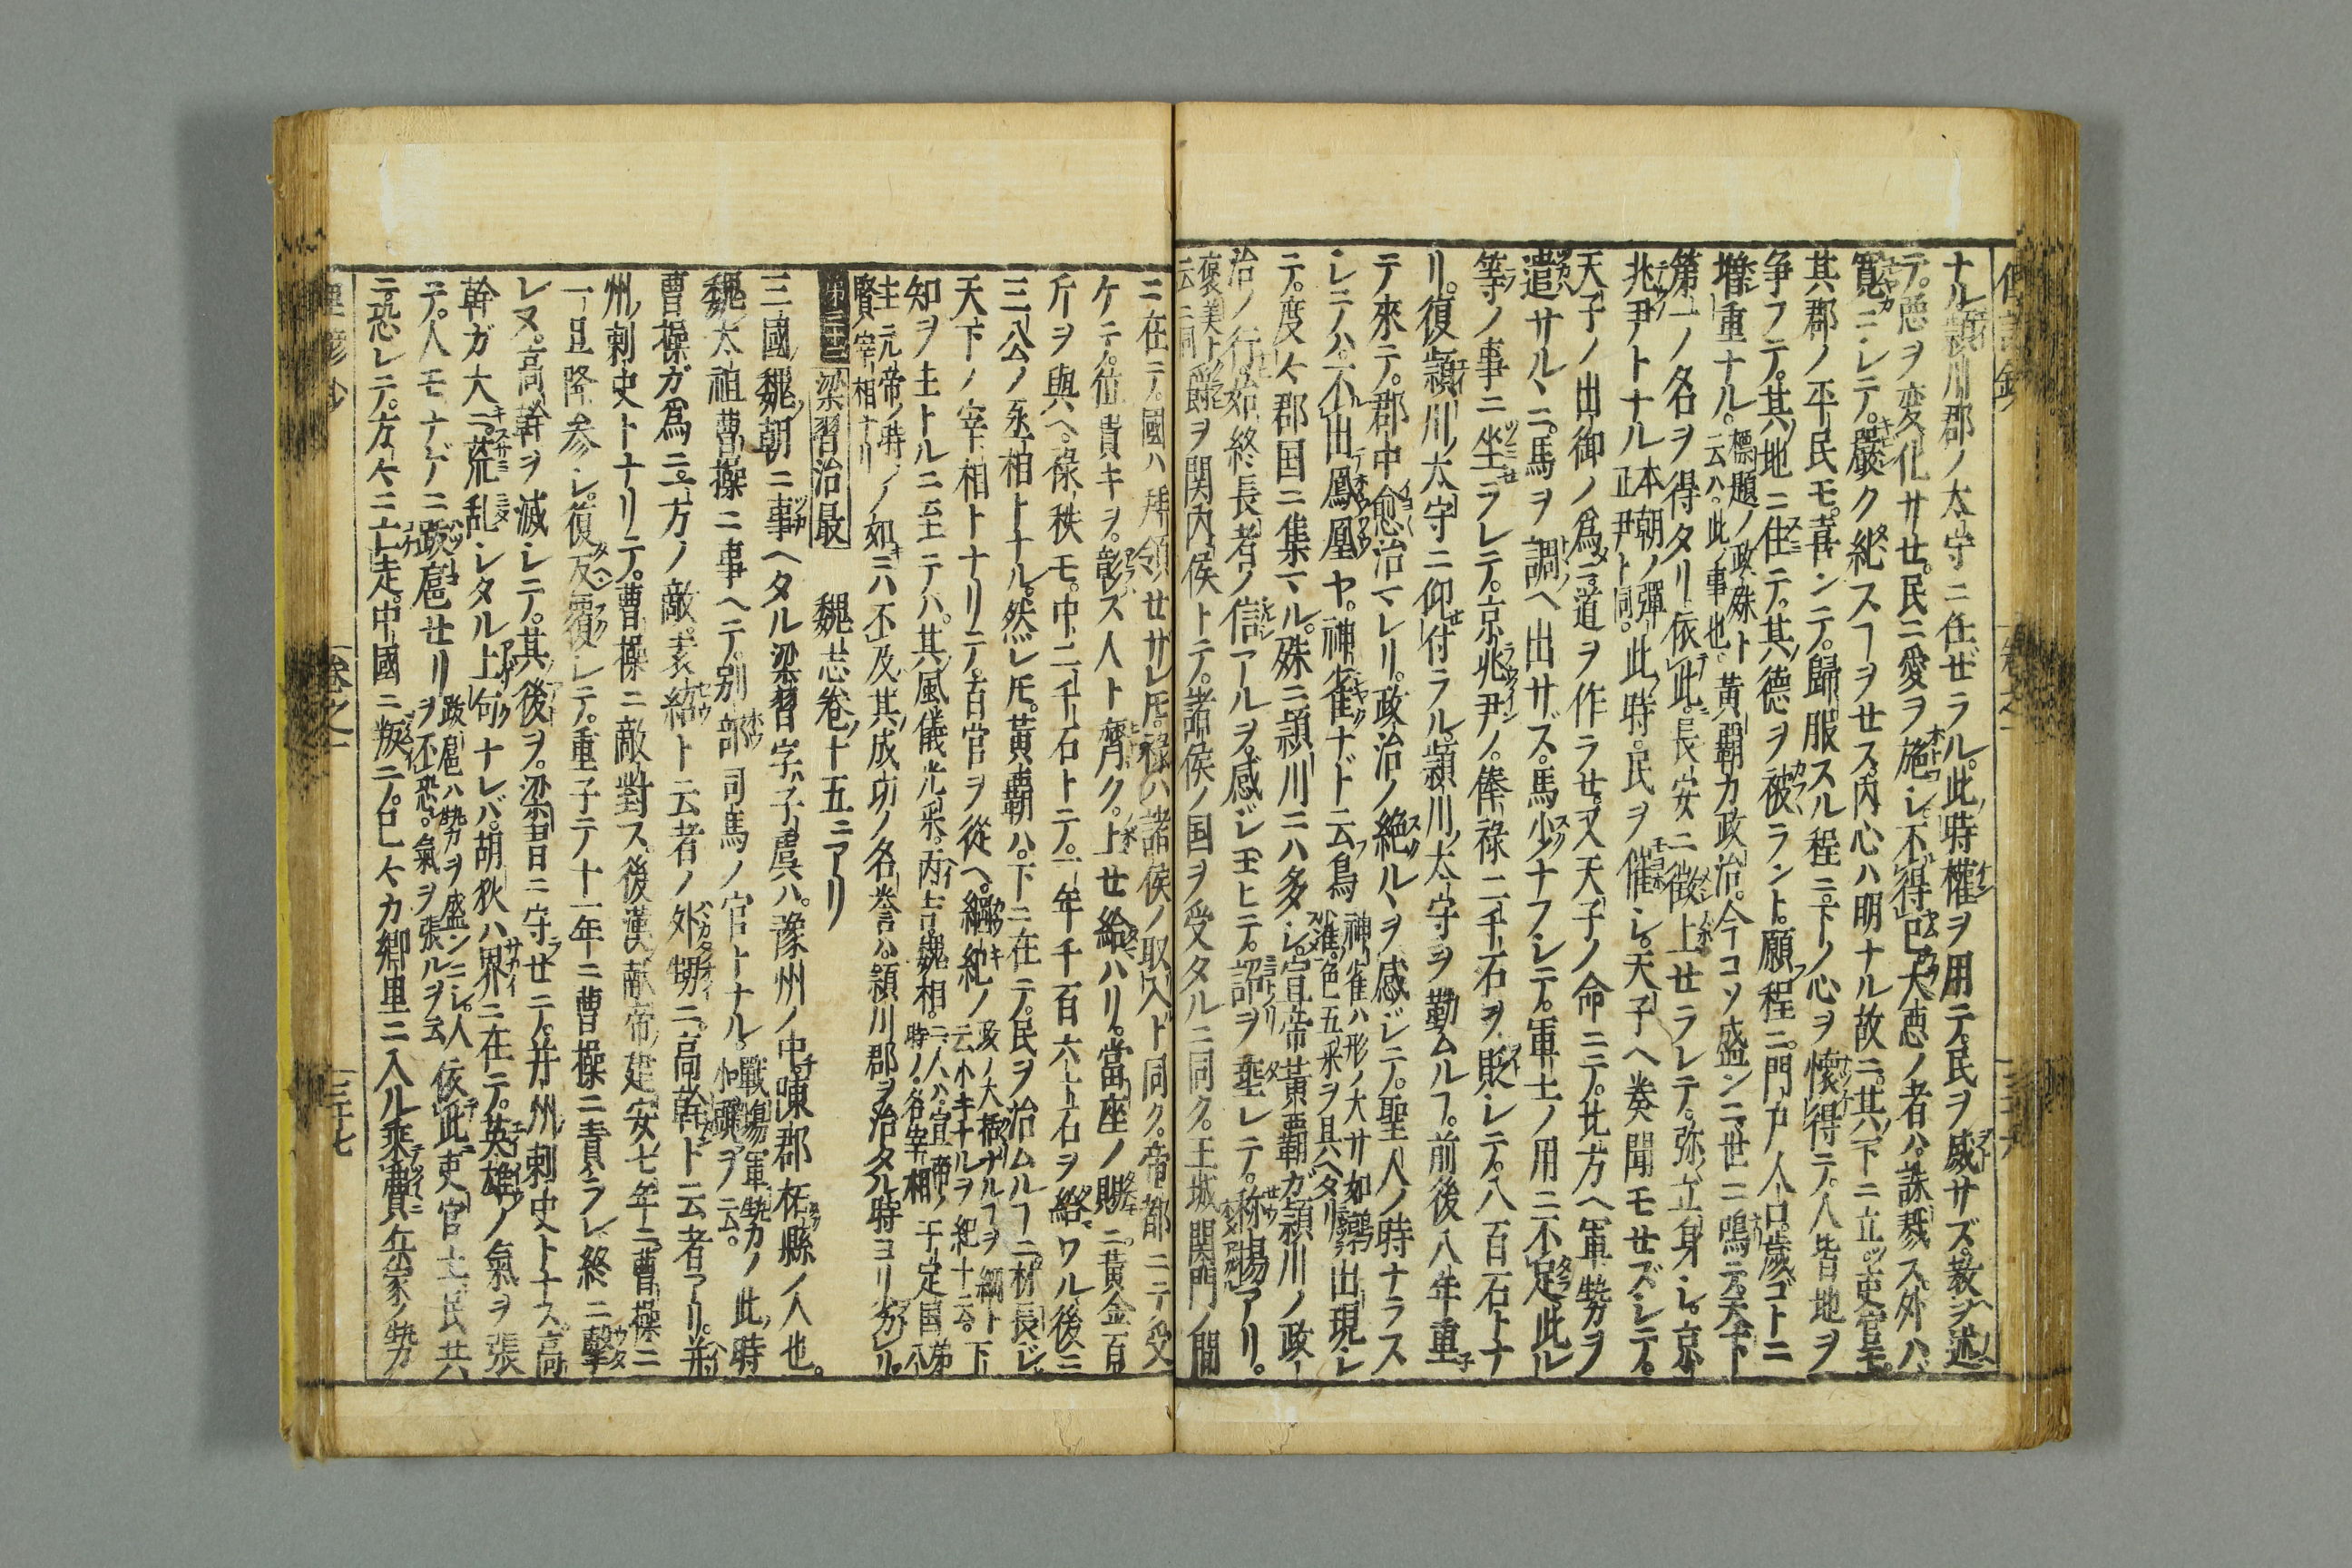 ナル潁川郡ノ太守ニ任ゼラル。此時權ヲ用テ民ヲ威サズ。教ヲ述
テ。悪ヲ変化サせ。民ニ愛ヲ施シ。不得已大悪ノ者ハ。誅戮ス。外ハ
寛ニシテ。嚴ク糺スヿヲせス。内心ハ明ナル故ニ。其下ニ立。吏官モ。
其郡ノ平民モ。喜ンデ。歸服スル程ニ。下ノ心ヲ懐得テ。人皆地ヲ
争フテ。其地ニ住テ。其德ヲ被ラント。願程ニ。門戸人口。歳ゴトニ
増重ナル。標題ノ政殊ト云ハ。此ノ事也。黄覇カ政治。今コソ盛ンニ。世ニ鳴テ。天下
第一ノ名ヲ得タリ。依此。長安ニ徴上せラレテ。弥立身シ。京
兆尹トナル本朝ノ彈正尹ト同。此時。民ヲ催シ。天子ヘ奏聞モせズシテ。
天子ノ出御ノ爲ニ。道ヲ作ラせ。又天子ノ命ニテ。北方ヘ軍勢ヲ
遣サルヽニ。馬ヲ調ヘ出サズ。馬少ナフシテ。軍士ノ用ニ不足。此ル
等ノ事ニ坐ラレテ。京兆尹ノ。俸祿二千石ヲ。貶シテ。八百石トナ
リ。復潁川ノ太守ニ仰付ラル。潁川ノ太守ヲ勤ムルヿ。前後八年。重
テ來テ。郡中愈治マレリ。政治ノ絶ルヽヲ感ジテ。聖人ノ時ナラス
シテハ。不出鳳凰ヤ。神雀ナド云鳥神雀ハ形ノ大サ如鷃雀。色五采ヲ具ヘタリ。出現シ
テ。度々郡国ニ集マル。殊ニ潁川ニハ多シ。宣帝黄覇ガ潁川ノ政
治ノ行。始終長者ノ信アルヲ。感ジ玉ヒテ。詔ヲ垂レテ。称揚アリ。
褒美トノ云ニ同爵ヲ関内侯トテ。諸侯ノ国ヲ受タルニ同ク。王城関門ノ間
ニ在テ。國ハ拜領せサレ𪜈。祿ハ諸侯ノ取入ド同ク。帝都ニテ受
ケテ。位貴キヲ。彰ス人ト齊ク。上せ給ハリ。當座ノ賜ニ。黄金百
斤ヲ與ヘ。祿秩モ。中二千石トテ。一年千百六十石ヲ給ワル。後ニ
三公ノ丞相トナル。然レ𪜈。黄覇ハ。下ニ在テ。民ヲ治ムルヿニ。材長ジ。
天下ノ宰相トナリテ。百官ヲ從ヘ。綱紀ノ政ノ大推ナルヿヲ綱ト云小キナルヲ紀ト云。下
知ヲ主トルニ至テハ。其風儀光采。丙吉魏相。二人ハ宣帝ノ時ノ名宰相于定国ハ
主元帝ノ時ノ賢宰相ナリノ如ニハ不及。其成功ノ名誉ハ。潁川郡ヲ治タル時ヨリ劣ル。
梁習治最　魏志卷ノ十五ニアリ
三國ノ魏ノ朝ニ事ヘタル梁習字ハ子虞ハ。豫州ノ中。陳郡柘縣ノ人也。
魏ノ太祖曹操ニ事ヘテ。別部司馬ノ官トナル。戰塲ノ軍勢ノ小頭ヲ云。此時
曹操ガ爲ニ。一方ノ敵。袁紹ト云者ノ外甥ニ。高幹ト云者アリ。并
州ノ刺史トナリテ。曹操ニ敵對ス。後漢ノ献帝ノ建安七年ニ。曹操ニ
一旦降参シ。復反覆シテ。重テ十一年ニ曹操ニ責ラレ終ニ擊
レヌ。高幹ヲ滅シテ。其後ヲ。梁習ニ守ラせテ。并州ノ刺史トナス。高
幹ガ大ニ荒乱シタル上句ナレバ。胡狄ハ界ニ在テ。英雄ノ氣ヲ張
テ。人モナゲニ跋扈せリ跋扈ハ勢カヲ盛ンニシ。人ヲ不恐。氣ヲ張ルヲ云依此。吏官士民共
ニ恐レテ。方々ニ亡走。中國ニ叛テ。已々カ郷里ニ入ル乘賣兵家ノ勢
卷之一
三十七